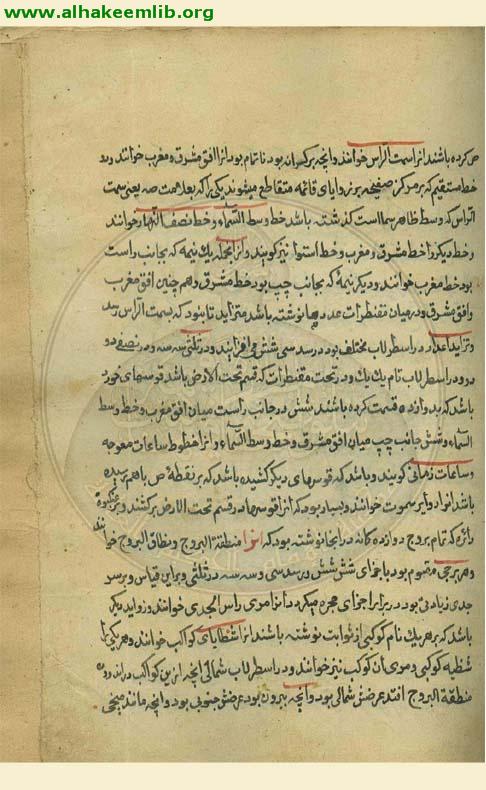 www.alhakeemlib.org
ص کرده باشند انرا سمت الرأس خوانند وانچه بر کرانه بود ناتمام بود انرا افق مشرق ومغرب خوانند ودو
خط مستقیم که بر مرکز صفیحه بر زوایای قائمه متقاطع میشوند یکی را که بعلامت صه یعنی سمت
الرأس که وسط ظاهر سما است کذشته باشد خط وسط السماء وخط نصف النهار خوانند
وخط دیکر را خط مشرق ومغرب وخط استوا نیز کویند وانرا جمله یك نیمه که بجانب راست
بود خط مغرب خوانند ودیکر نیمه که بجانب چپ بود خط مشرق وهم چنین افق مغرب
وافق مشرق ودر میان مقنطرات عددها نوشته باشد متزاید تا بنود که بسمت الرأس رسد
وتزاید اعداد در اسطرلاب مختلف بود در سدسی شش شش افزایند ودر ثلثی سه سه ودر نصفی دو
دو ودر اسطرلاب تام یك یك ودر تحت مقنطرات که قسم تحت الارض باشد قوسهای خورد
باشد که بدوازده قسمت کرده باشند شش در جانب راست میان افق مغرب وخط وسط
السماء وشش جانب چپ میان افق مشرق وخط وسط السماء وانرا خطوط ساعات معوجه
وساعات زمانی کویند وباشد که قوسهای دیکر کشیده باشد که بر نقطهٔ ص باهم رسیده
باشد انرا دوایر سموت خوانند وبسیار بود که انرا قوسها در قسم تحت الارض برکشند وبر عنکبوت
دائره که تمام بروج دوازده کانه در انجا نوشته بود که انرا منطقة البروج ونطاق البروج خوانند
وهر برجی مقسوم بود باجزای شش شش در سدسی وسه سه در ثلثی وبر این قیاس وبر سر
جدی زیادتی بود در برابر اجزای حجره میکردد انرا موی راس الجدی خوانند وزواید دیکر
باشد که بر هر یك نام کوکبی از ثوابت نوشته باشند انرا شظایای کواکب خوانند وهر یکی را
شظیه کوکبی وموی ان کوکب نیز خوانند ودر اسطرلاب شمالی انچه ازین کواکب در اندرون
منطقة البروج افتد عرضش شمالی بود وانچه بیرون بود عرضش جنوبی بود وانچه مانند میخی